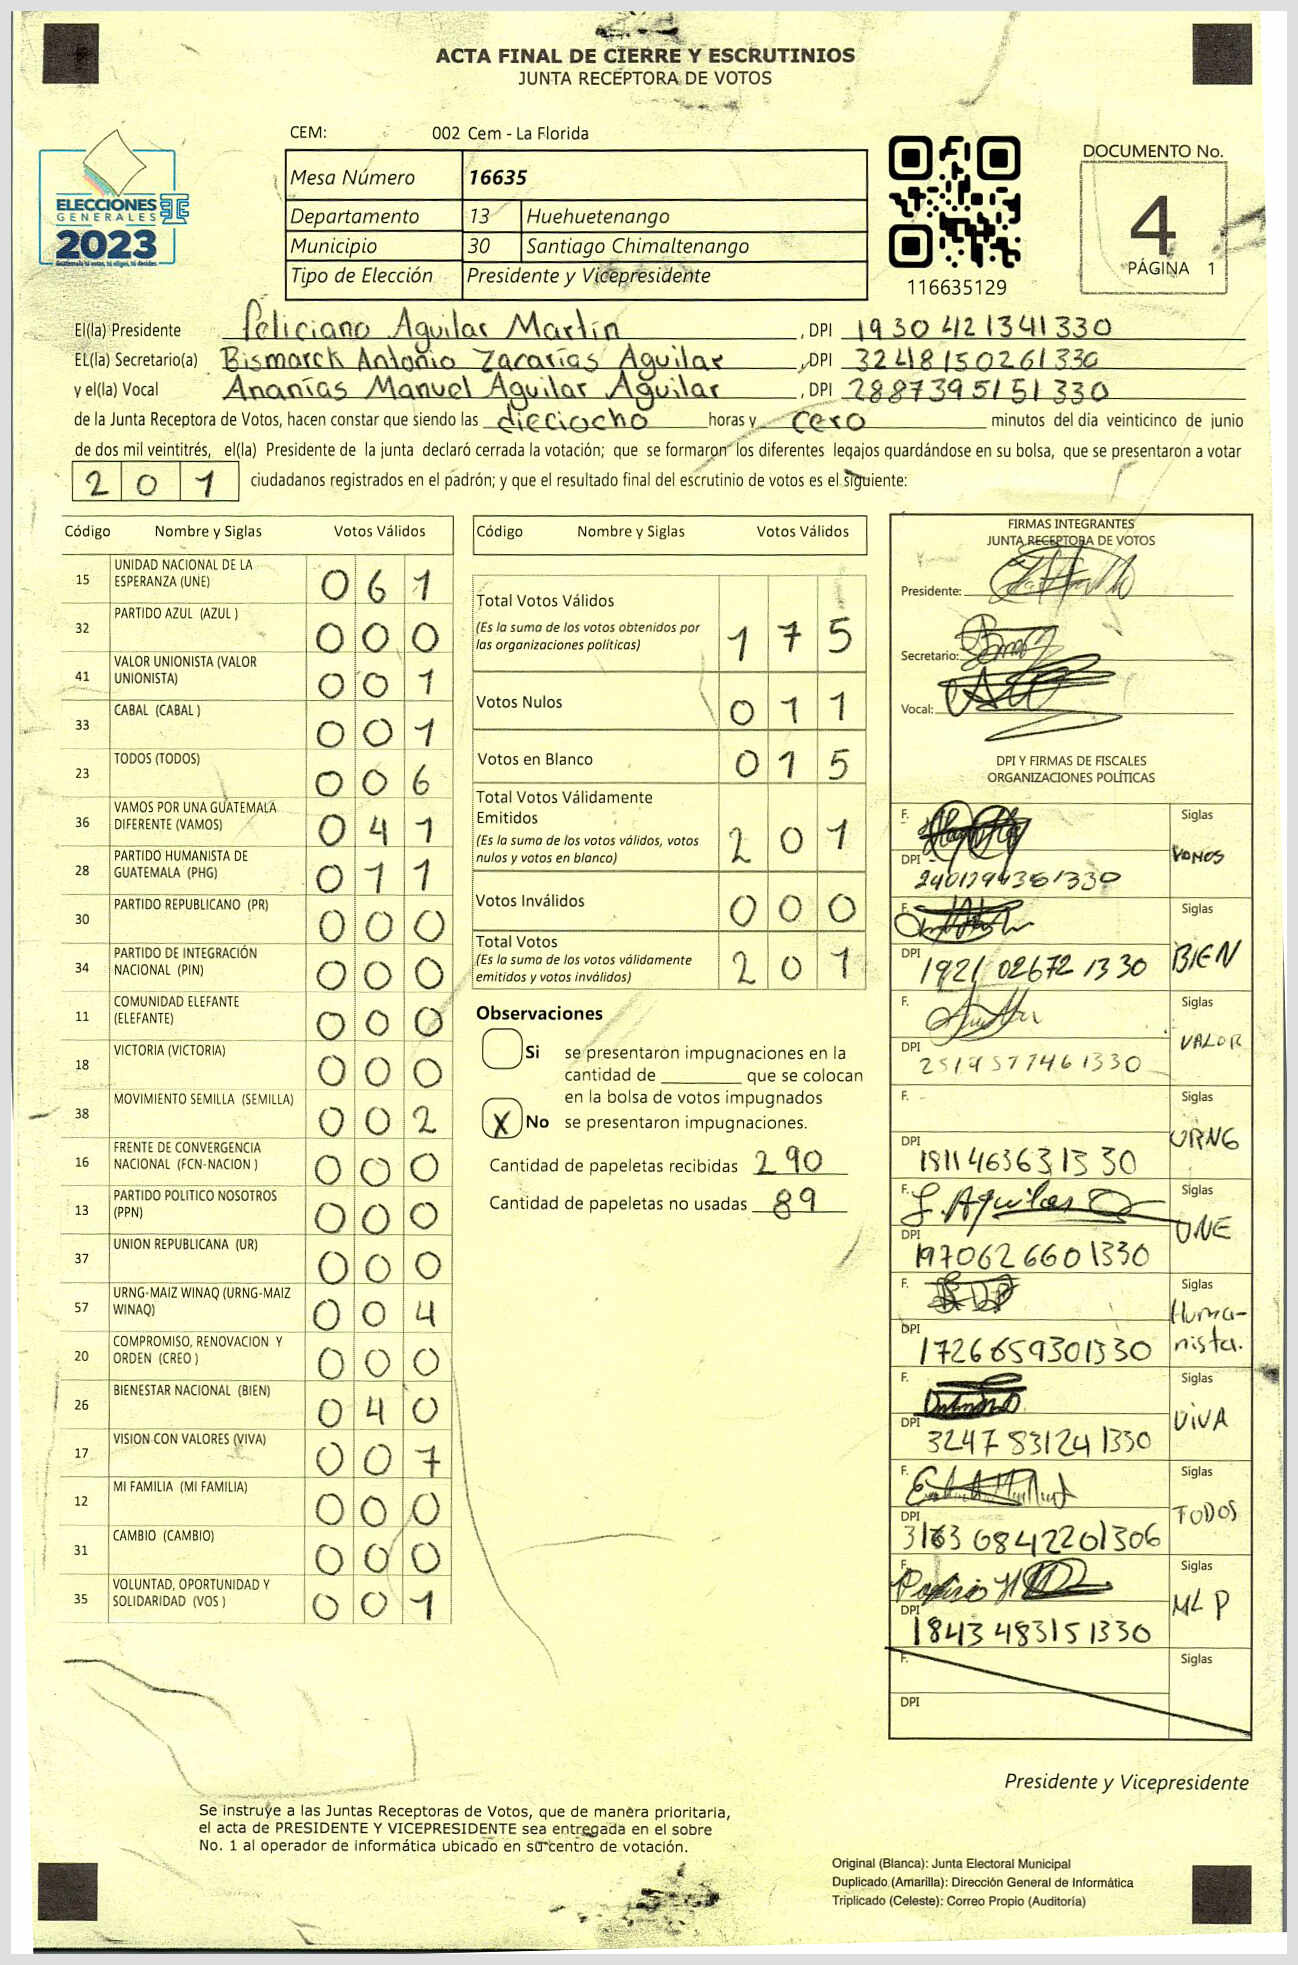 ACTA FINAL DE CIERRE Y ESCRUTINIOS
JUNTA RECEPTORA DE VOTOS
CEM: 002 Cem - La Florida
ELECCIONES
GENERALES
2023
Mesa Número 16635
Departamento 13 Huehuetenango
Municipio 30 Santiago Chimaltenango
Tipo de Elección Presidente y Vicepresidente
116635129
DOCUMENTO No.
4
PÁGINA 1
El(la) Presidente Feliciano Aguilar Martín , DPI 1930421341330
EL(la) Secretario(a) Bismarck Antonio Zacarías Aguilar , DPI 3248150261330
y el(la) Vocal Ananías Manuel Aguilar Aguilar , DPI 2887395151330
de la Junta Receptora de Votos, hacen constar que siendo las dieciocho horas y cero minutos del día veinticinco de junio
de dos mil veintitrés, el(la) Presidente de la junta declaró cerrada la votación; que se formaron los diferentes legajos guardándose en su bolsa, que se presentaron a votar
201 ciudadanos registrados en el padrón; y que el resultado final del escrutinio de votos es el siguiente:
Código Nombre y Siglas Votos Válidos
15 UNIDAD NACIONAL DE LA ESPERANZA (UNE) 061
32 PARTIDO AZUL (AZUL ) 000
41 VALOR UNIONISTA (VALOR UNIONISTA) 001
33 CABAL (CABAL ) 001
23 TODOS (TODOS) 006
36 VAMOS POR UNA GUATEMALA DIFERENTE (VAMOS) 041
28 PARTIDO HUMANISTA DE GUATEMALA (PHG) 011
30 PARTIDO REPUBLICANO (PR) 000
34 PARTIDO DE INTEGRACIÓN NACIONAL (PIN) 000
11 COMUNIDAD ELEFANTE (ELEFANTE) 000
18 VICTORIA (VICTORIA) 000
38 MOVIMIENTO SEMILLA (SEMILLA) 002
16 FRENTE DE CONVERGENCIA NACIONAL (FCN-NACION ) 000
13 PARTIDO POLITICO NOSOTROS (PPN) 000
37 UNION REPUBLICANA (UR) 000
57 URNG-MAIZ WINAQ (URNG-MAIZ WINAQ) 004
20 COMPROMISO, RENOVACION Y ORDEN (CREO ) 000
26 BIENESTAR NACIONAL (BIEN) 040
17 VISION CON VALORES (VIVA) 007
12 MI FAMILIA (MI FAMILIA) 000
31 CAMBIO (CAMBIO) 000
35 VOLUNTAD, OPORTUNIDAD Y SOLIDARIDAD (VOS ) 001
Código Nombre y Siglas Votos Válidos
Total Votos Válidos 175
(Es la suma de los votos obtenidos por
las organizaciones políticas)
Votos Nulos 011
Votos en Blanco 015
Total Votos Válidamente
Emitidos 201
(Es la suma de los votos válidos, votos
nulos y votos en blanco)
Votos Inválidos 000
Total Votos 201
(Es la suma de los votos válidamente
emitidos y votos inválidos)
Observaciones
Si se presentaron impugnaciones en la
cantidad de ________ que se colocan
en la bolsa de votos impugnados
X No se presentaron impugnaciones.
Cantidad de papeletas recibidas 290
Cantidad de papeletas no usadas 89
FIRMAS INTEGRANTES
JUNTA RECEPTORA DE VOTOS
Presidente:
Secretario:
Vocal:
DPI Y FIRMAS DE FISCALES
ORGANIZACIONES POLÍTICAS
F. Siglas
DPI VAMOS
F. Siglas
DPI 1921 02672 1330 BIEN
F. Siglas
DPI 2519577461330 VALOR
F. Siglas
DPI 1811463631330 URNG
F. J. Aguilar Siglas
DPI 1970626601330 UNE
F. Siglas
DPI 1726659301330 Humanista.
F. Siglas
DPI 3247831241330 ViVA
F. Siglas
DPI 31630842201306 TODOS
F. Siglas
DPI 1843483151330 MLP
F. Siglas
DPI
Presidente y Vicepresidente
Se instruye a las Juntas Receptoras de Votos, que de manera prioritaria,
el acta de PRESIDENTE Y VICEPRESIDENTE sea entregada en el sobre
No. 1 al operador de informática ubicado en su centro de votación.
Original (Blanca): Junta Electoral Municipal
Duplicado (Amarilla): Dirección General de Informática
Triplicado (Celeste): Correo Propio (Auditoría)